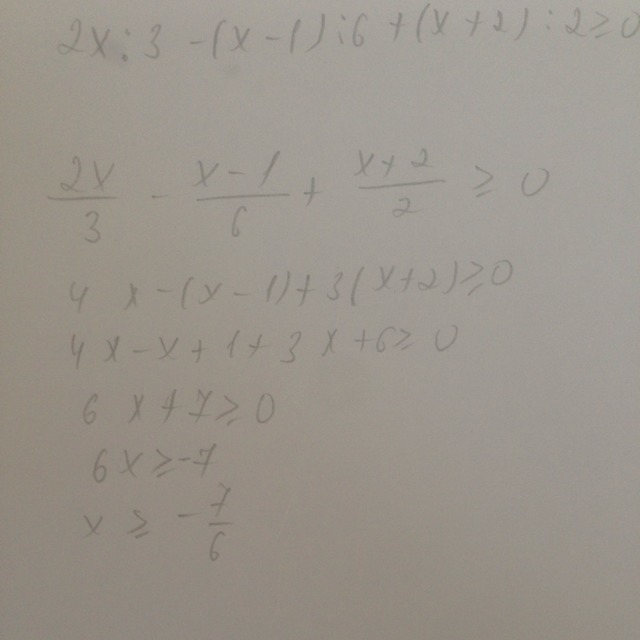 2x:3 -(x-1):6 +(x+2):2≥0
2x/3 - (x-1)/6 + (x+2)/2 ≥ 0
4x-(x-1)+3(x+2)≥0
4x-x+1+3x+6≥0
6x+7≥0
6x≥-7
x≥-7/6